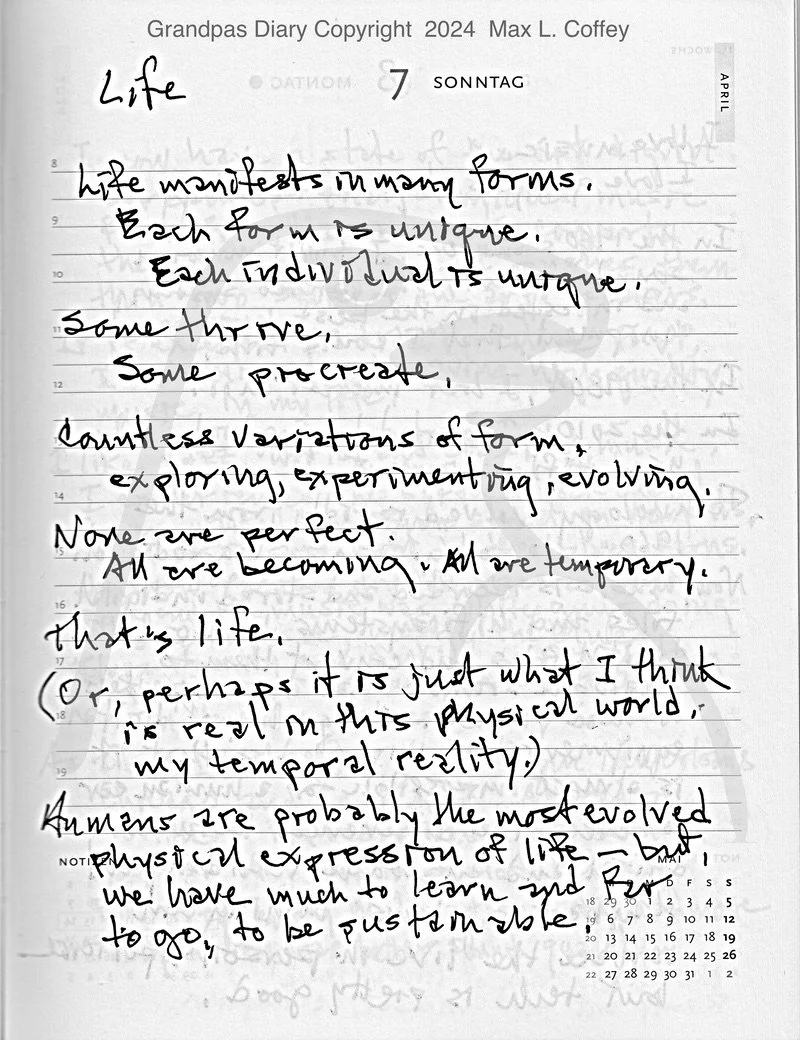 Grandpas Diary Copyright 2024 Max L. Coffey
Life
7 SONNTAG
APRIL
8
Life manifests in many forms.
9
Each form is unique.
10
Each individual is unique.
11
Some thrive,
Some procreate,
12
Countless variations of form,
exploring, experimenting, evolving.
14
None are perfect.
15
All are becoming. All are temporary.
16
That's life.
17
(Or, perhaps it is just what I think
18
is real in this physical world,
my temporal reality.)
19
Humans are probably the most evolved
physical expression of life — but,
NOTIZEN
MAI
we have much to learn and far
D F S S
18 29 30 1 2 3 4 5
to go, to be sustainable.
19 6 7 8 9 10 11 12
20 13 14 15 16 17 18 19
21 20 21 22 23 24 25 26
22 27 28 29 30 31 1 2